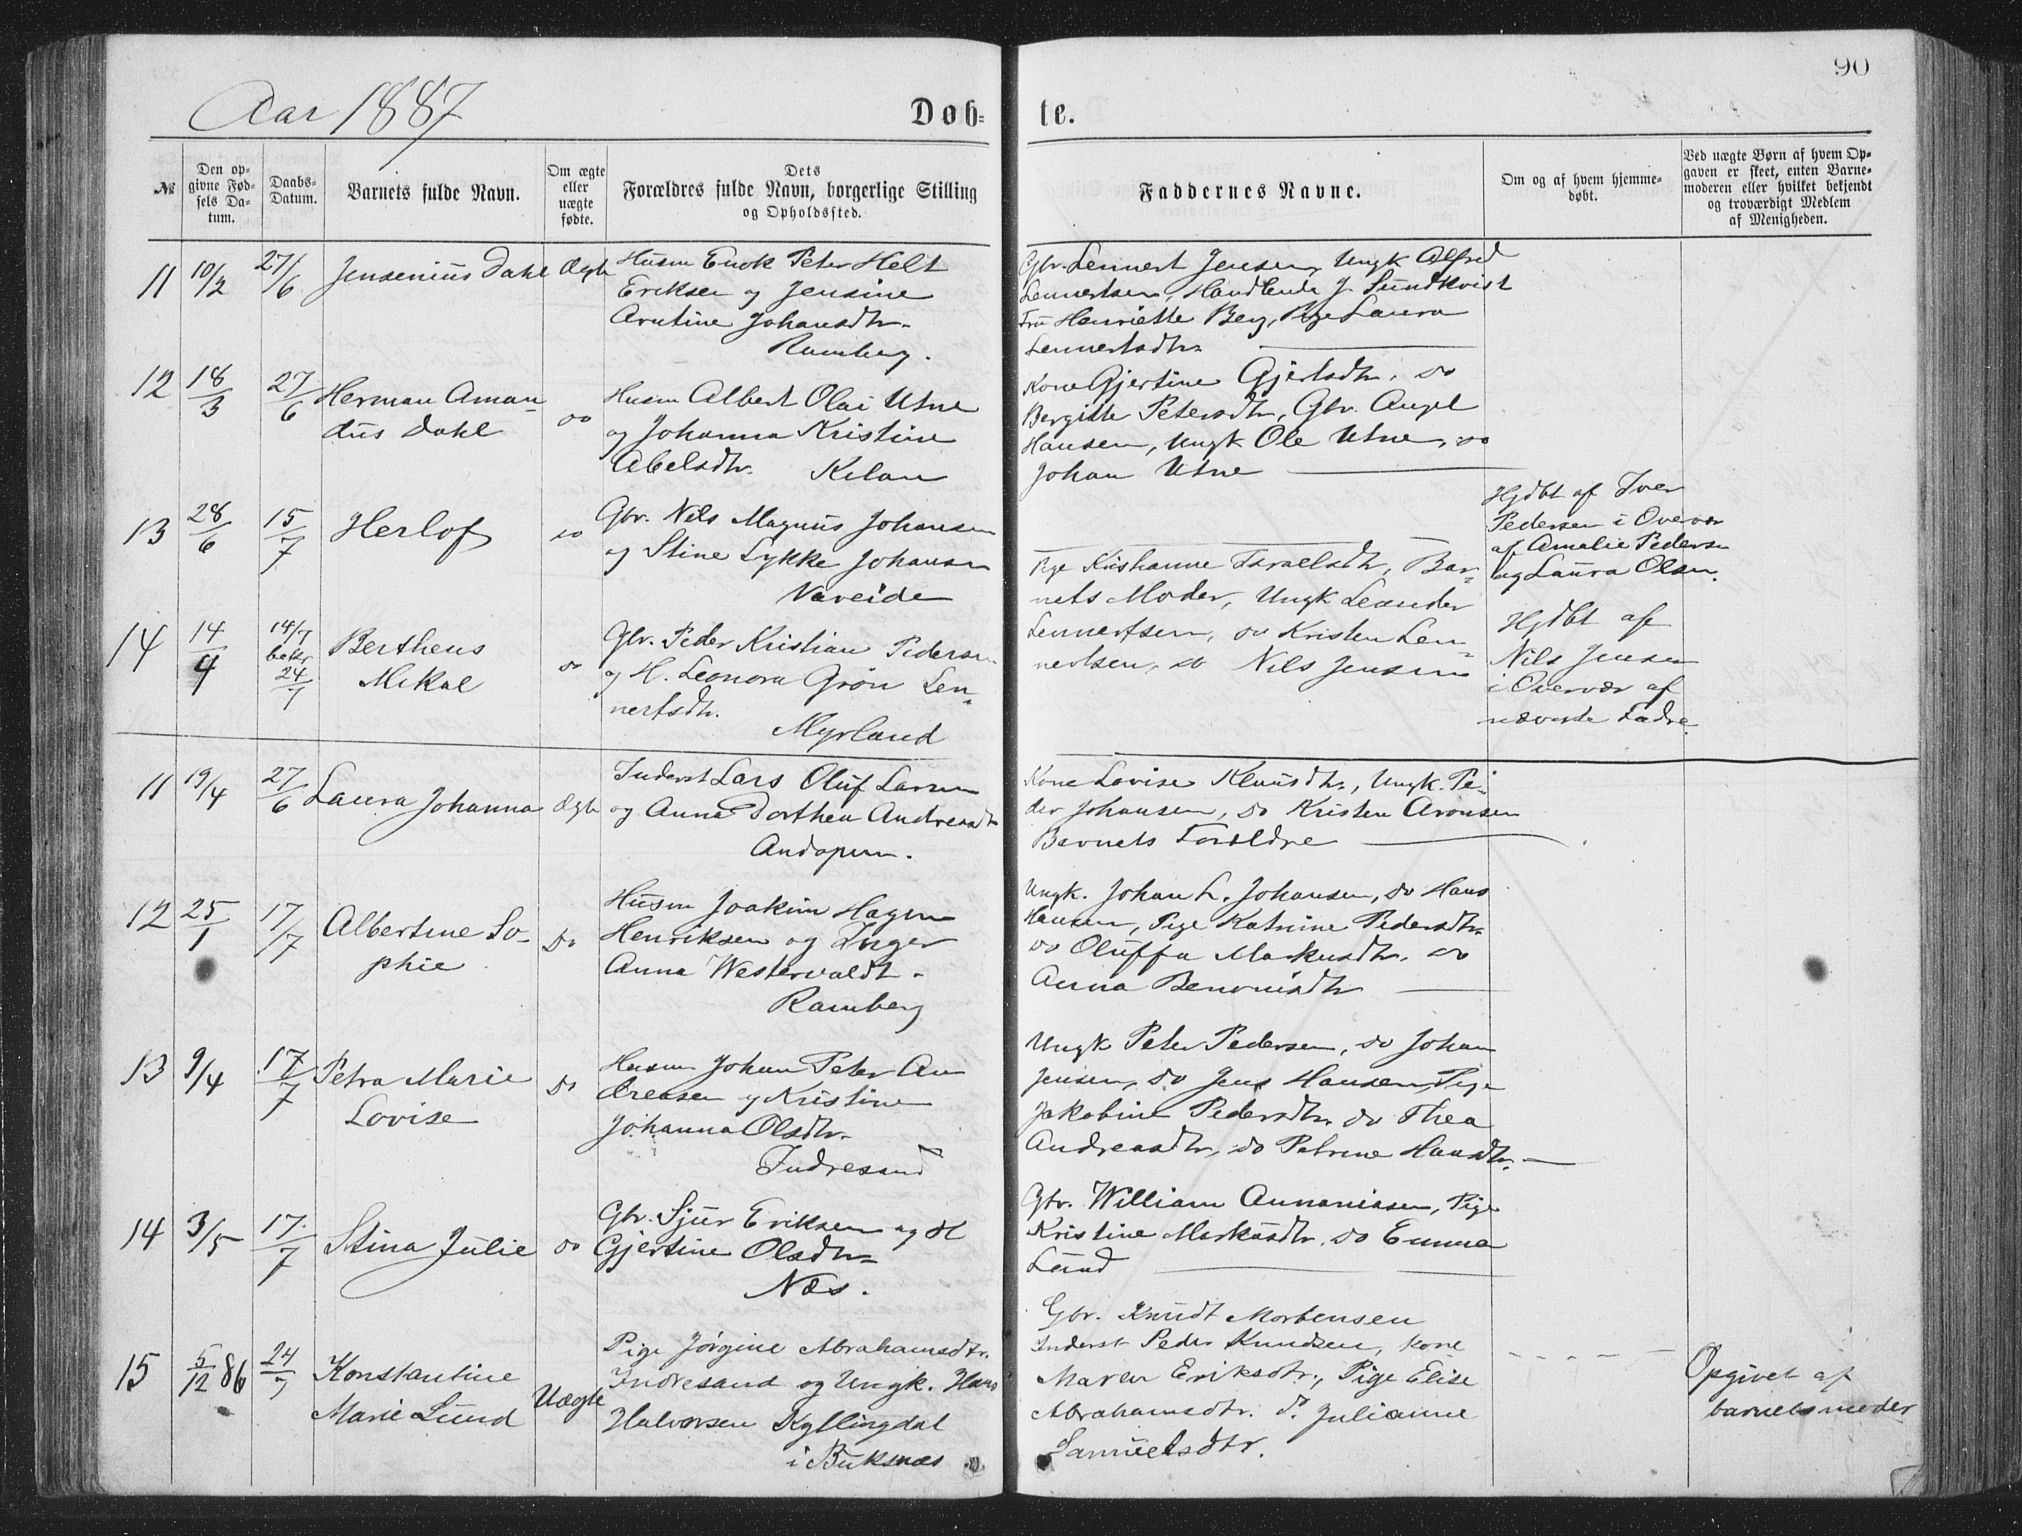 90
Aar 1887
Døb-
te.
№
Den op-
givne Fød-
sels Da-
tum.
Daabs-
Datum.
Barnets fulde Navn.
Om ægte
eller
uægte
fødte.
Dets
Forældres fulde Navn, borgerlige Stilling
og Opholdssted.
Faddernes Navne.
Om og af hvem hjemme-
døbt.
Ved uægte Børn af hvem Op-
gaven er skeet, enten Barne-
moderen eller hvilket bekjendt
og troværdigt Medlem
af Menigheden.
11 10/2 27/6 Jensenius Dahl Ægte
Husm Enok Peter Helt
Eriksen og Jensine
Arntine Johansdtr.
Ramberg.
Gbr. Lennert Jensen, Ungk Alfred
Lennertsen, Handlende J. Sundkvist
Fru Henriette Berg, Pige Laura
Lennertsdtr.
12 18/3 27/6 Herman Aman-
dus Dahl do
Husm Albert Olai Utne
og Johanna Kristine
Abelsdtr. Kilan
Kone Gjertine Gjertsdtr, do
Bergitte Petersdtr, Gbr. Angel
Hansen, Ungk Ole Utne, do
Johan Utne
13 28/6 15/7 Herlof do
Gbr. Nils Magnus Johansen
og Stine Lykke Johansen
Nareide
Hjdbt af Iver
Pedersen i Overvær
af Amalie Pedersen
og Laura Olsen.
14 14/4 14/7
bekr
24/7
Bertheus
Mikal do
Gbr. Peder Kristian Pedersen
og H. Leonora Grøn Len-
nertsdtr.
Myrland
Pige Kristianne Israelsdtr, Bar-
nets Moder, Ungk Leander
Lennertsen, do Kristen Len-
nertsen, do Nils Jensen
Hjdbt af
Nils Jensen
i Overvær af
nævnte Fadre.
11 19/4 27/6 Laura Johanna Ægte
Inderst Lars Oluf Larsen
og Anna Dorthea Andreasdtr
Andopen.
Kone Lovise Klausdtr, Ungk. Pe-
der Johansen, do Kristen Aronsen
Barnets Forældre
12 25/1 17/7 Albertine So-
phie do
Husm Joakim Hagen
Henriksen og Inger
Anna Westervaldt.
Ramberg
Ungk. Johan L. Johansen, do Hans
Hansen, Pige Katrine Pedersdtr
do Oluffa Markusdtr. do
Anna Benonisdtr
13 9/4 17/7 Petra Marie
Lovise do
Husm Johan Peter An
dreasen og Kristine
Johanna Olsdtr.
Indresand
Ungk Peter Pedersen, do Johan
Jensen, do Jens Hansen, Pige
Jakobine Pedersdtr. do Thea
Andreasdtr, do Petrine Hansdtr.
14 3/5 17/7 Stina Julie do
Gbr. Sjur Eriksen og H
Gjertine Olsdtr
Næs.
Gbr. William Annaniasen, Pige
Kristine Markusdtr, do Emma
Lund
15 5/12 86 24/7 Konstantine
Marie Lund Uægte
Pige Jørgine Abrahamsdtr.
Indresand og Ungk. Hans
Halvorsen Kyllingdal
i Buksnæs
Gbr. Knudt Mortensen
Inderst Peder Knudsen, Kone
Maren Eriksdtr., Pige Elise
Abrahamsdtr. do Julianne
Samuelsdtr.
Opgivet af
barnets moder